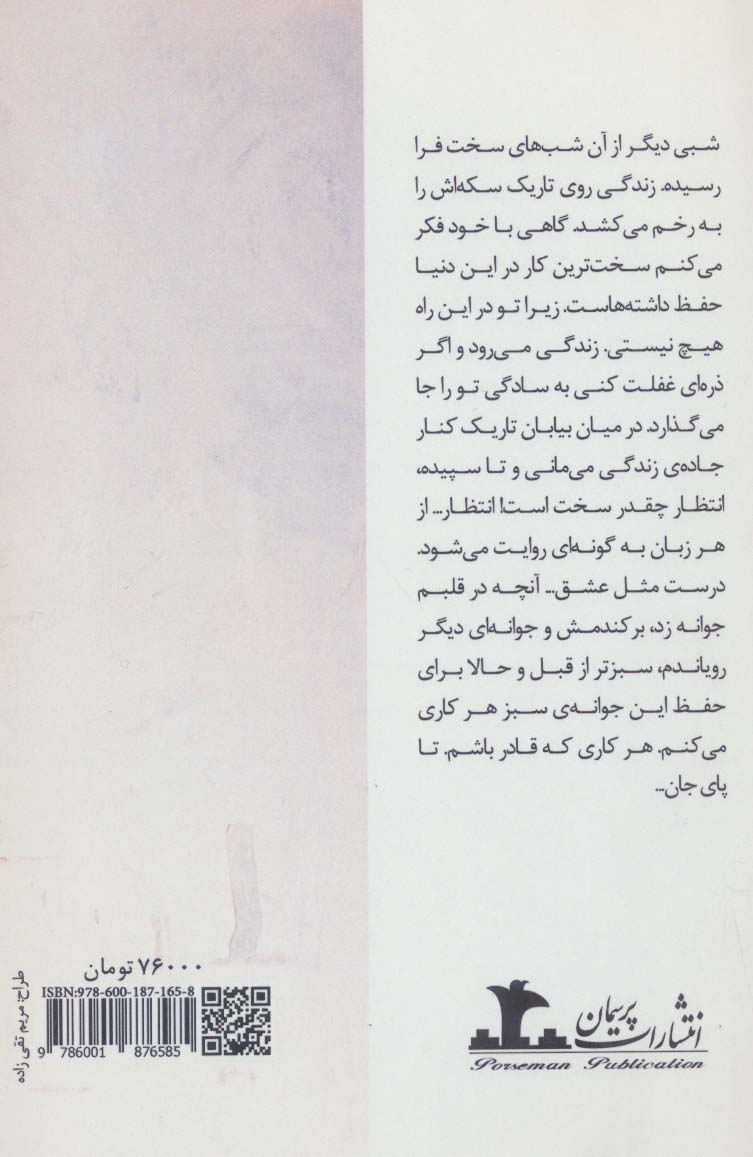 شبی دیگر از آن شب‌های سخت فرا
رسیده. زندگی روی تاریک سکه‌اش را
به رخم می‌کشد. گاهی با خود فکر
می‌کنم سخت‌ترین کار در این دنیا
حفظ داشته‌هاست. زیرا تو در این راه
هیچ نیستی. زندگی می‌رود و اگر
ذره‌ای غفلت کنی به سادگی تو را جا
می‌گذارد. در میان بیابان تاریک کنار
جاده‌ی زندگی می‌مانی و تا سپیده،
انتظار چقدر سخت است! انتظار... از
هر زبان به گونه‌ای روایت می‌شود.
درست مثل عشق... آنچه در قلبم
جوانه زد، برکندمش و جوانه‌ای دیگر
رویاندم، سبزتر از قبل و حالا برای
حفظ این جوانه‌ی سبز هر کاری
می‌کنم. هر کاری که قادر باشم. تا
پای جان...
انتشارات پرسمان
Porseman Publication
۷۶۰۰۰ تومان
ISBN:978-600-187-165-8
9 786001 876585
طراح: مریم تقی زاده